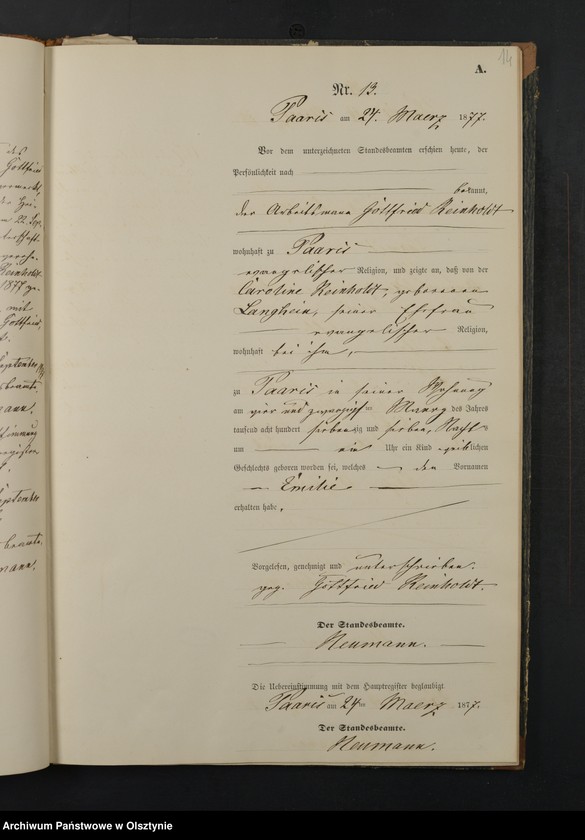 14
A.
Nr. 13.
Paaris am 24. Maerz 1877.
Vor dem unterzeichneten Standesbeamten erschien heute, der
Persönlichkeit nach
bekannt,
der Arbeitsmann Gottfried Reinholdt
wohnhaft zu Paaris
evangelischer Religion, und zeigte an, daß von der
Caroline Reinholdt, geborenen
Langhein, seiner Ehefrau
evangelischer Religion,
wohnhaft bei ihm,
zu Paaris in seiner Wohnung
am vier und zwanzigsten Maerz des Jahres
tausend acht hundert siebenzig und sieben, Nachts
um ein Uhr ein Kind weiblichen
Geschlechts geboren worden sei, welches den Vornamen
Emilie
erhalten habe.
Vorgelesen, genehmigt und unterschrieben.
gez. Gottfried Reinholdt.
Der Standesbeamte.
Neumann.
Die Uebereinstimmung mit dem Hauptregister beglaubigt
Paaris am 24ten Maerz 1877.
Der Standesbeamte.
Neumann.
Archiwum Państwowe w Olsztynie